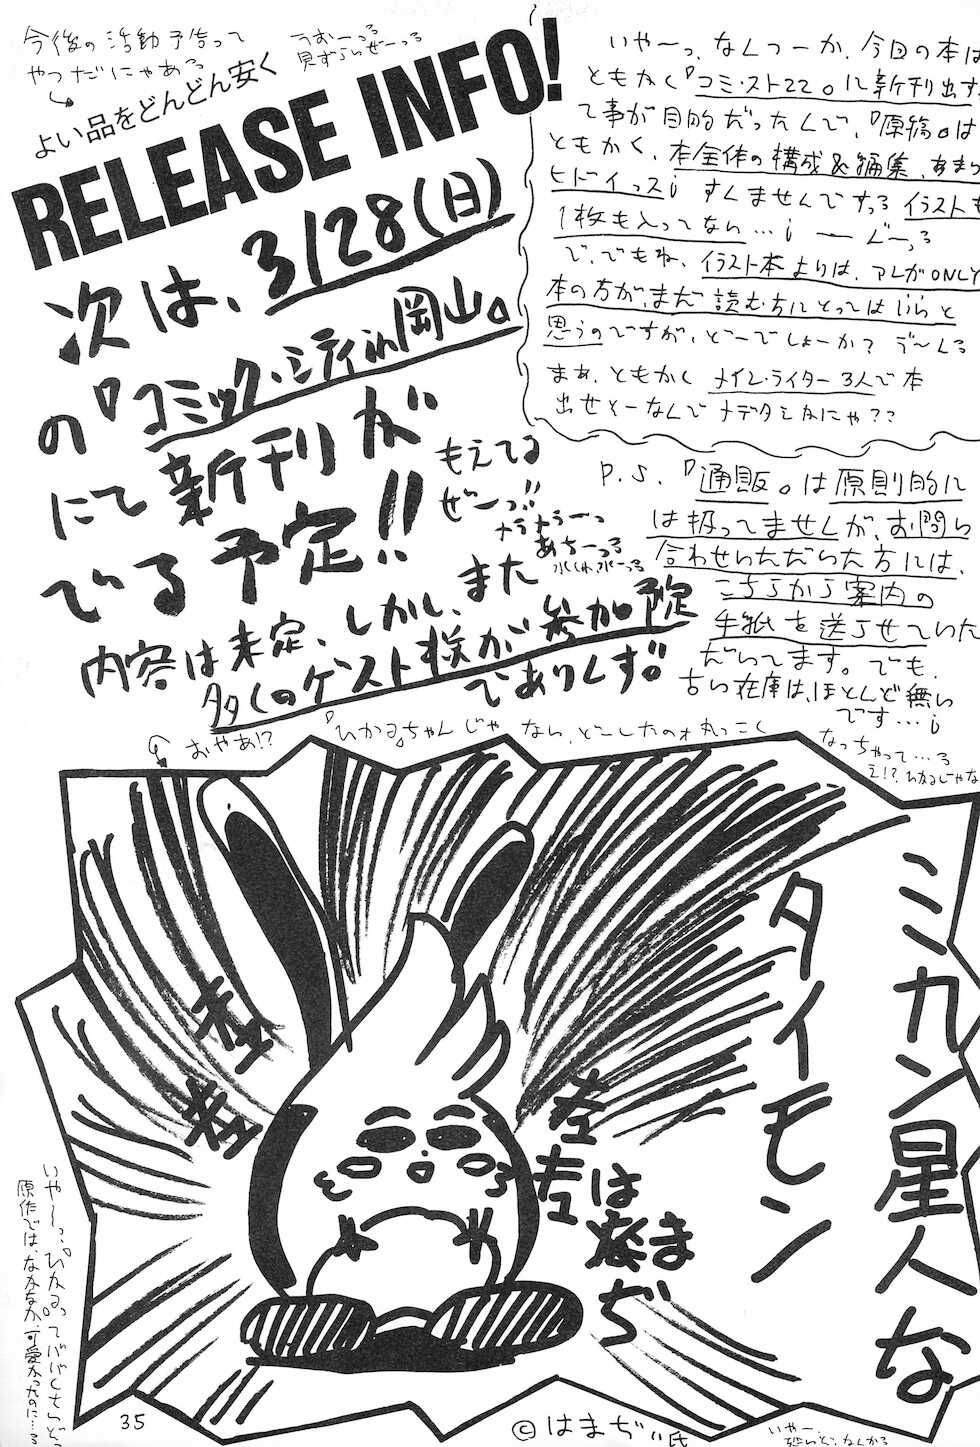 今後の活動予告って
やつだにゃある
よい品をどんどん安く
うおーっる
見ずらいぜーっる
RELEASE INFO!
次は、3/28(日)
の『コミック・シティin岡山』
にて新刊が
でる予定!!
もえてる
ぜーっ!!
メラメラーっ
あちーっる
内容は未定、しかし、また
多くのゲスト様が参加予定
でありんす。
いやーっ、なんつーか、今回の本は
ともかく『コミ・スト22』に新刊出す
て事が目的だったんで、『原稿』は
ともかく、本全体の構成&編集、あまり
ヒドイっス¡ すんませんですっる イラストも
1枚も入ってない…¡
で、でもね、イラスト本よりは、アレがONLY
本の方が、まだ読む方にとってはいいと
思うのですが、どーでしょーか? う〜んる
まぁ、ともかく メイン・ライター3人で本
出せそーなんで メデタシかにゃ??
P.S.『通販』は原則的に
は扱ってませんが、お問い
合わせいただいた方には、
こちらから案内の
手紙を送らせていた
だいてます。でも、
古い在庫は、ほとんど無い
です…¡
おやあ!?
『ひかる』ちゃんじゃない、どーしたのォ丸っこく
なっちゃって…る
え!?、ひかるじゃな
ミカン星人な
タイモン
左
左
左
左
はまぢ
いや〜っ、『ひかる』って
原作では、なかなか、可愛かったのに…る
35
©はまぢぃ氏
いやー、